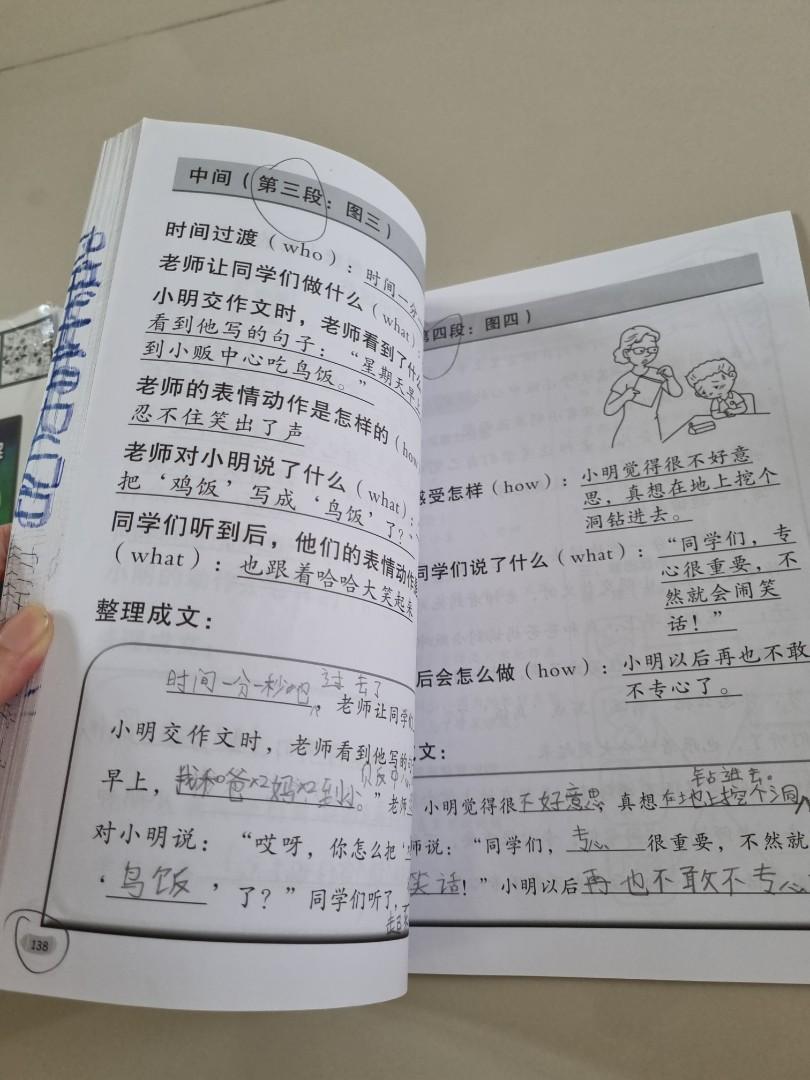 中间（第三段：图三）
时间过渡（who）：时间一分一
老师让同学们做什么（what）：
小明交作文时，老师看到了什么
看到他写的句子：“星期天早上
到小贩中心吃鸟饭。”
老师的表情动作是怎样的（how
忍不住笑出了声
老师对小明说了什么（what）：
把‘鸡饭’写成‘鸟饭’了？”
同学们听到后，他们的表情动作
（what）：也跟着哈哈大笑起来
整理成文：
时间一分一秒 过去了，老师让同学
小明交作文时，老师看到他写的
早上，我和爸x2妈x2到小 贩中。”老师
对小明说：“哎呀，你怎么把‘
‘鸟饭’，了？”同学们听了，
138
第四段：图四）
感受怎样（how）：小明觉得很不好意
思，真想在地上挖个
洞钻进去。
同学们说了什么（what）：“同学们，专
心很重要，不然
就会闹笑
话！”
后会怎么做（how）：小明以后再也不敢
不专心了。
文：
小明觉得很不好意思，真想在地上挖个洞钻进去。
师说：“同学们，专心很重要，不然就
笑话！”小明以后再也不敢不专心